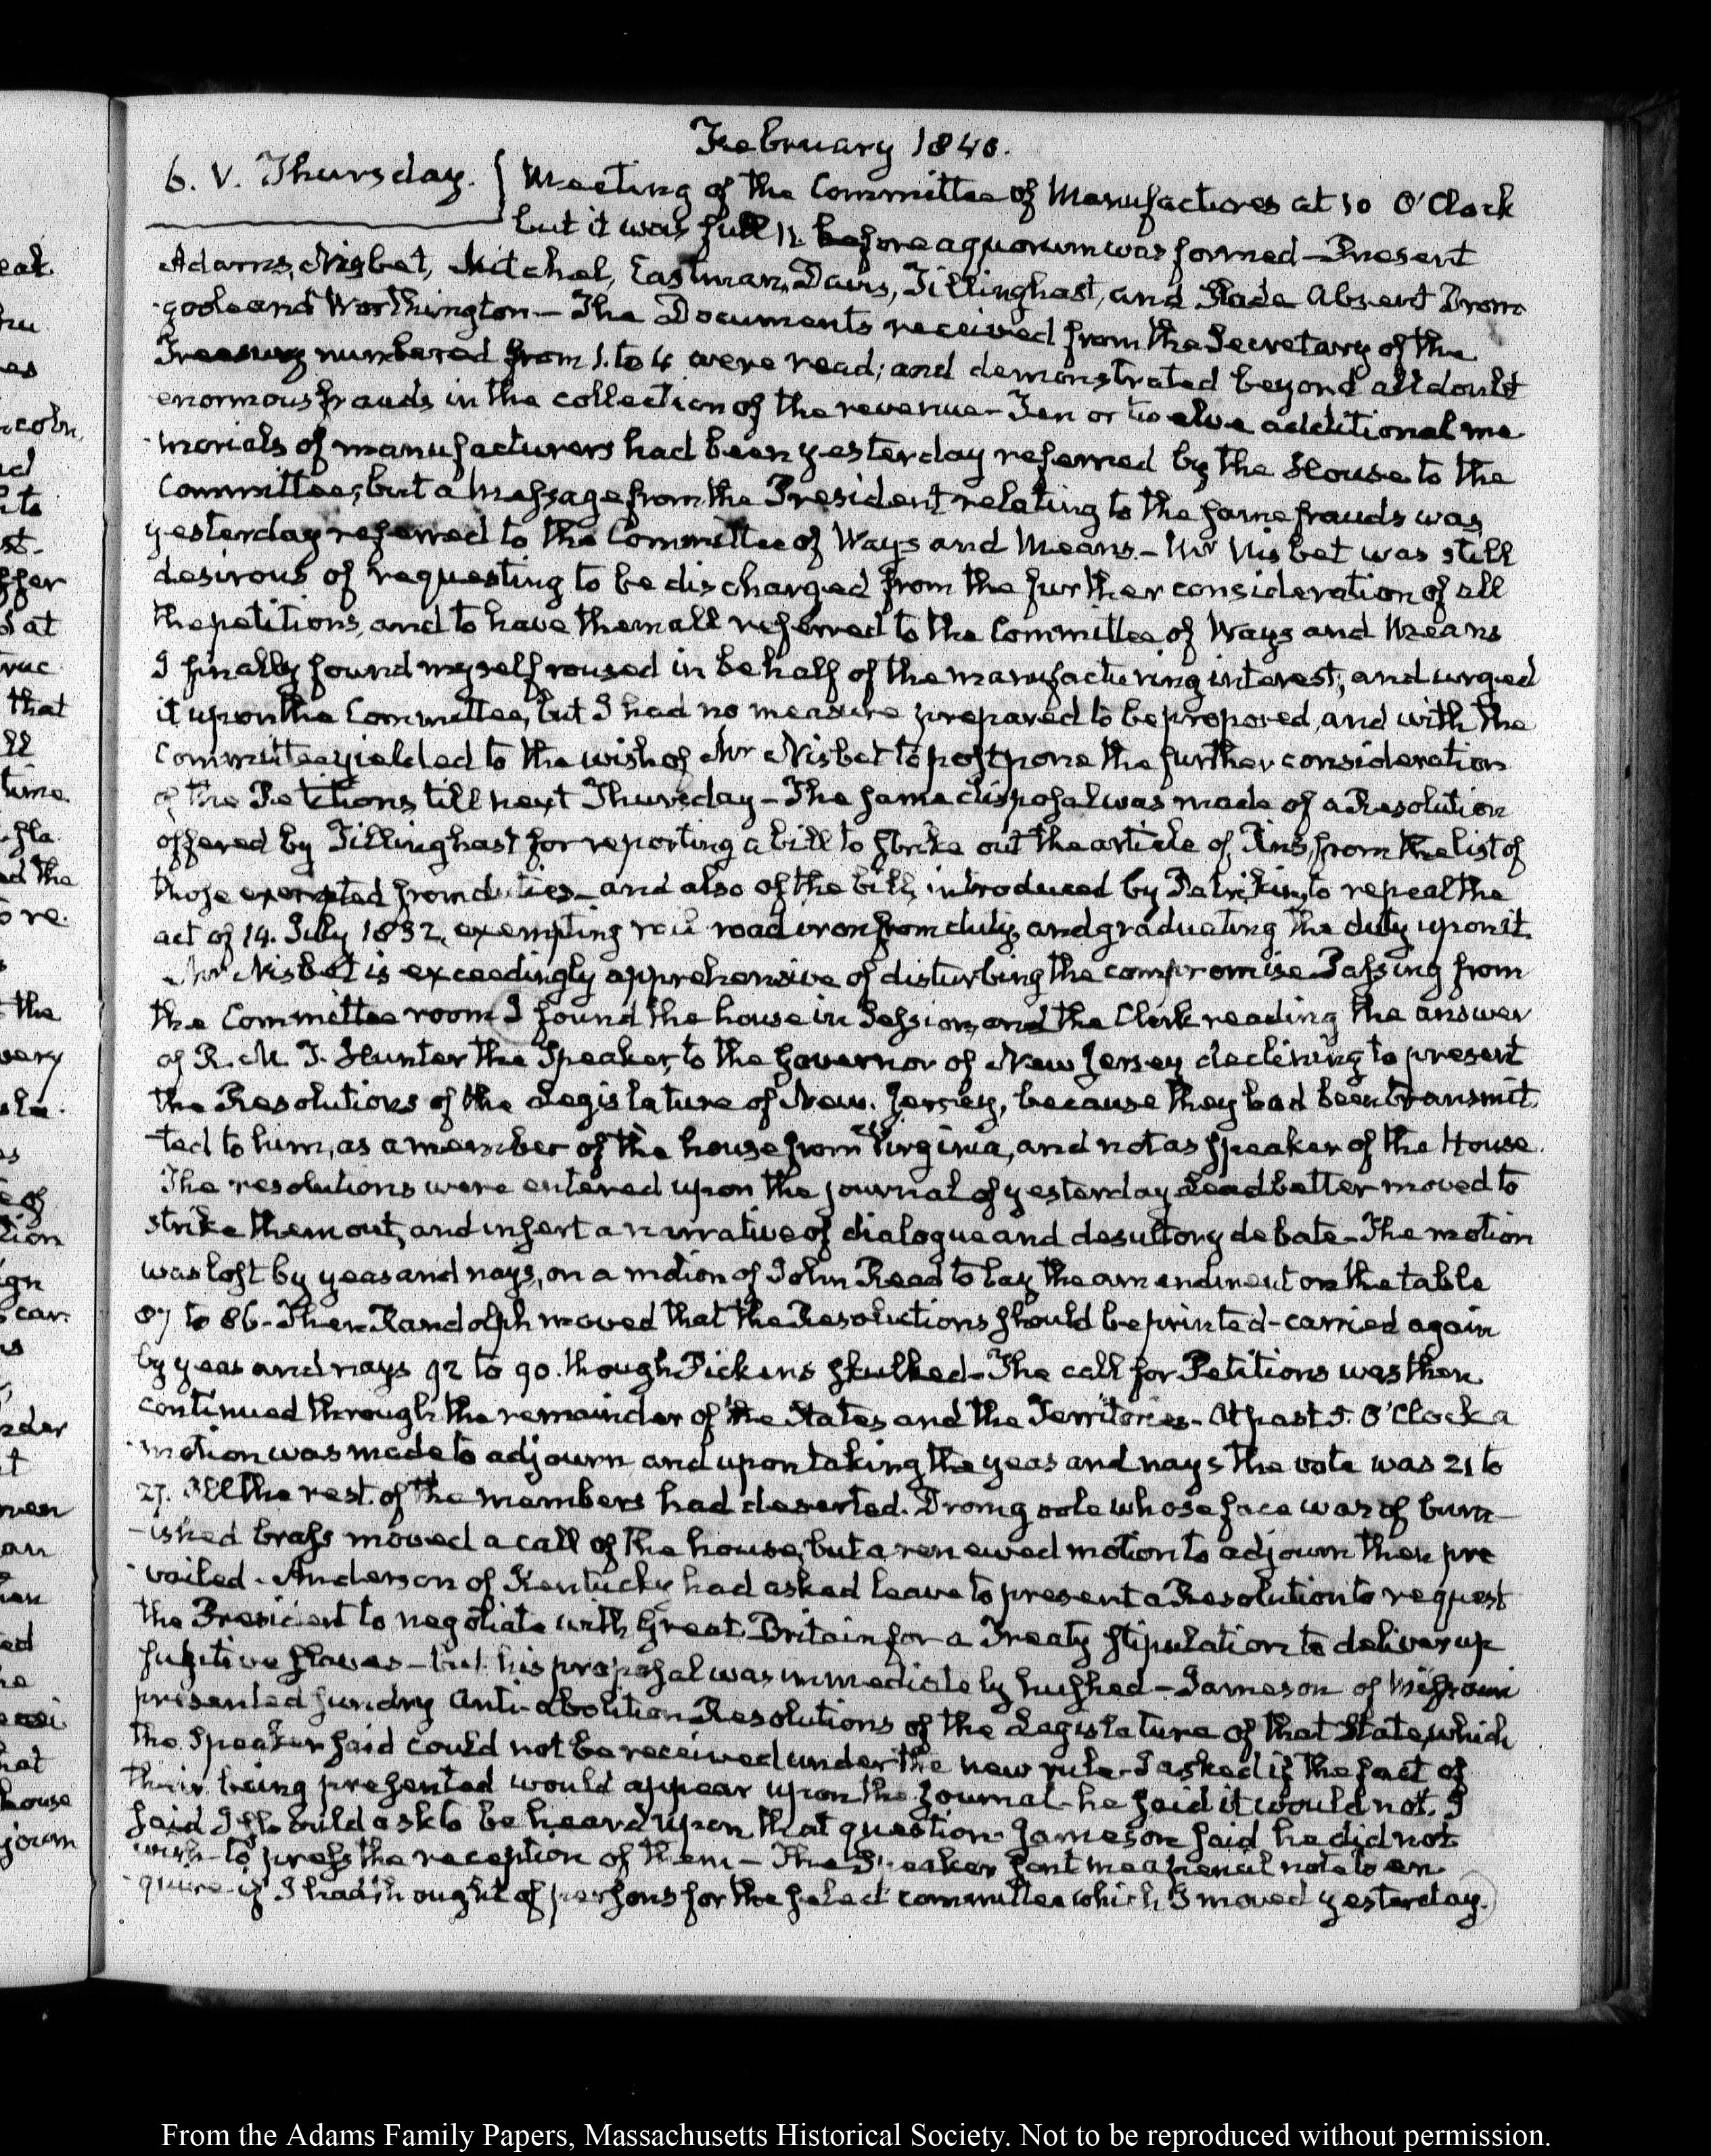 February 1840.
6. V. Thursday. } Meeting of the Committee of Manufactures at 10 O'Clock
but it was full 11. before a quorum was formed — Present
Adams, Nisbet, Mitchel, Eastman, Davis, Tillinghast, and Slade Absent Drom
-goole and Worthington — The Documents received from the Secretary of the
Treasury numbered from 1. to 4 were read; and demonstrated beyond all doubt
enormous frauds in the collection of the revenue — Ten or twelve additional me
-morials of manufacturers had been yesterday referred by the House to the
Committee; but a Message from the President relating to the same frauds was
yesterday referred to the Committee of Ways and Means. — Mr Nisbet was still
desirous of requesting to be discharged from the further consideration of all
the petitions, and to have them all referred to the Committee of Ways and Means
I finally found myself roused in behalf of the manufacturing interest; and urged
it upon the Committee, but I had no measure prepared to be proposed, and with the
Committee yielded to the wish of Mr Nisbet to postpone the further consideration
of the Petitions till next Thursday — The same disposal was made of a Resolution
offered by Tillinghast for reporting a bill to strike out the article of Pins, from the list of
those exempted from duties — and also of the bill, introduced by Petrikin, to repeal the
act of 14. July 1832, exempting rail road iron from duty, and graduating the duty upon it.
Mr Nisbet is exceedingly apprehensive of disturbing the compromise Passing from
the Committee room I found the house in Session, and the Clerk reading the answer
of R. M. T. Hunter the Speaker, to the Governor of New Jersey declining to present
the Resolutions of the Legislature of New. Jersey, because they had been transmit
-ted to him, as a member of the house from Virginia, and not as Speaker of the House.
The resolutions were entered upon the journal of yesterday Leadbetter moved to
strike them out, and insert a narrative of dialogue and desultory debate — The motion
was lost by yeas and nays, on a motion of John Read to lay the amendment on the table
87 to 86 — Then Randolph moved that the Resolutions should be printed — carried again
by yeas and nays 92 to 90. though Pickens skulked — The call for Petitions was then
continued through the remainder of the States and the Territories — At past 5. O'Clock a
-motion was made to adjourn and upon taking the yeas and nays the vote was 21 to
27. All the rest of the members had deserted. Dromgoole whose face was of burn-
-ished brass moved a call of the house, but a renewed motion to adjourn then pre
-vailed — Anderson of Kentucky had asked leave to present a Resolution to request
the President to negotiate with Great-Britain for a Treaty stipulation to deliver up
fugitive slaves — but his proposal was immediately hushed — Jameson of Missouri
presented sundry Anti-abolition Resolutions of the Legislature of that State, which
the Speaker said could not be received under the new rule — I asked if the fact of
their being presented would appear upon the Journal — he said it would not. I
said I should ask to be heard upon that question — Jameson said he did not
wish to press the reception of them — The Speaker sent me a pencil note to en
-quire if I had thought of persons for the select committee which I moved yesterday.
eat
hu
es
ncoln
nd
nto
st.
ffer
s at
ruc
that
ll
time.
ed the
re.
the
very
e of
tion
ign
car
is
nder
it
an
ed
he
hat
house
journ
From the Adams Family Papers, Massachusetts Historical Society. Not to be reproduced without permission.